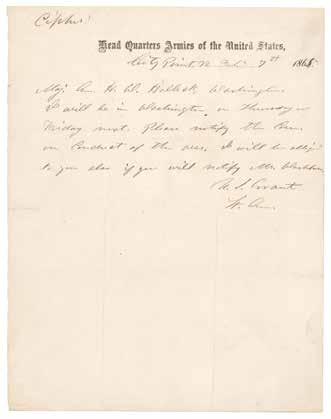 Cipher
Head Quarters Armies of the United States,
City Point, Va. Feb. 7th 1865
Maj. Gen. H. W. Halleck, Washington
I will be in Washington on Thursday or
Friday next. Please notify the Com.
on Conduct of the war. I will be obliged
to you also if you will notify Mr. Washburn
U. S. Grant
Lt. Gen.